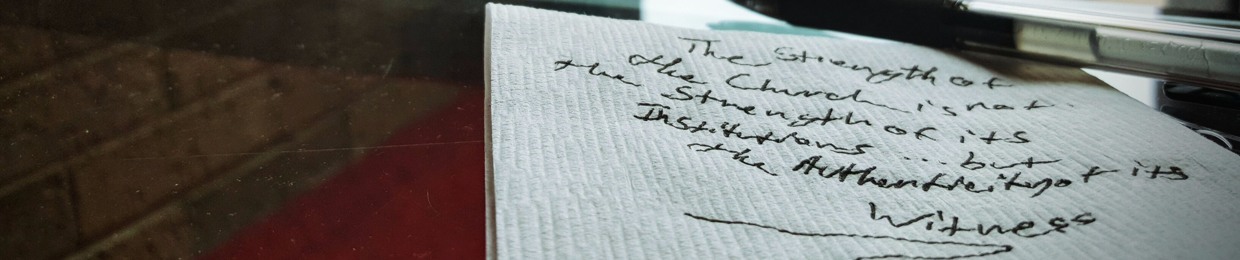 The Strength of
the Church is not
the Strength of its
Institutions ... but
the Authenticity of its
Witness